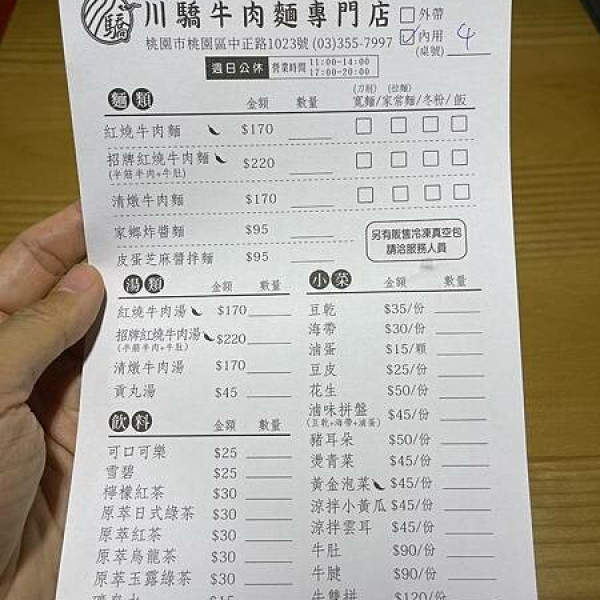 驕
川驕牛肉麵專門店
外帶
桃園市桃園區中正路1023號 (03)355-7997
內用 4
(桌號)
週日公休 營業時間 11:00-14:00
17:00-20:00
麵類 金額 數量 (刀削)寬麵/(拉麵)家常麵/冬粉/飯
紅燒牛肉麵 $170
招牌紅燒牛肉麵 $220
(半筋半肉+牛肚)
清燉牛肉麵 $170
家鄉炸醬麵 $95
皮蛋芝麻醬拌麵 $95
另有販售冷凍真空包
請洽服務人員
湯類 金額 數量
紅燒牛肉湯 $170
招牌紅燒牛肉湯 $220
(半筋半肉+牛肚)
清燉牛肉湯 $170
貢丸湯 $45
飲料 金額 數量
可口可樂 $25
雪碧 $25
檸檬紅茶 $30
原萃日式綠茶 $30
原萃紅茶 $30
原萃烏龍茶 $30
原萃玉露綠茶 $30
礦泉水 $15
小菜 金額 數量
豆乾 $35/份
海帶 $30/份
滷蛋 $15/顆
豆皮 $25/份
花生 $50/份
滷味拼盤 $45/份
(豆乾+海帶+滷蛋)
豬耳朵 $50/份
燙青菜 $45/份
黃金泡菜 $45/份
涼拌小黃瓜 $45/份
涼拌雲耳 $45/份
牛肚 $90/份
牛腱 $90/份
牛雙拼 $120/份